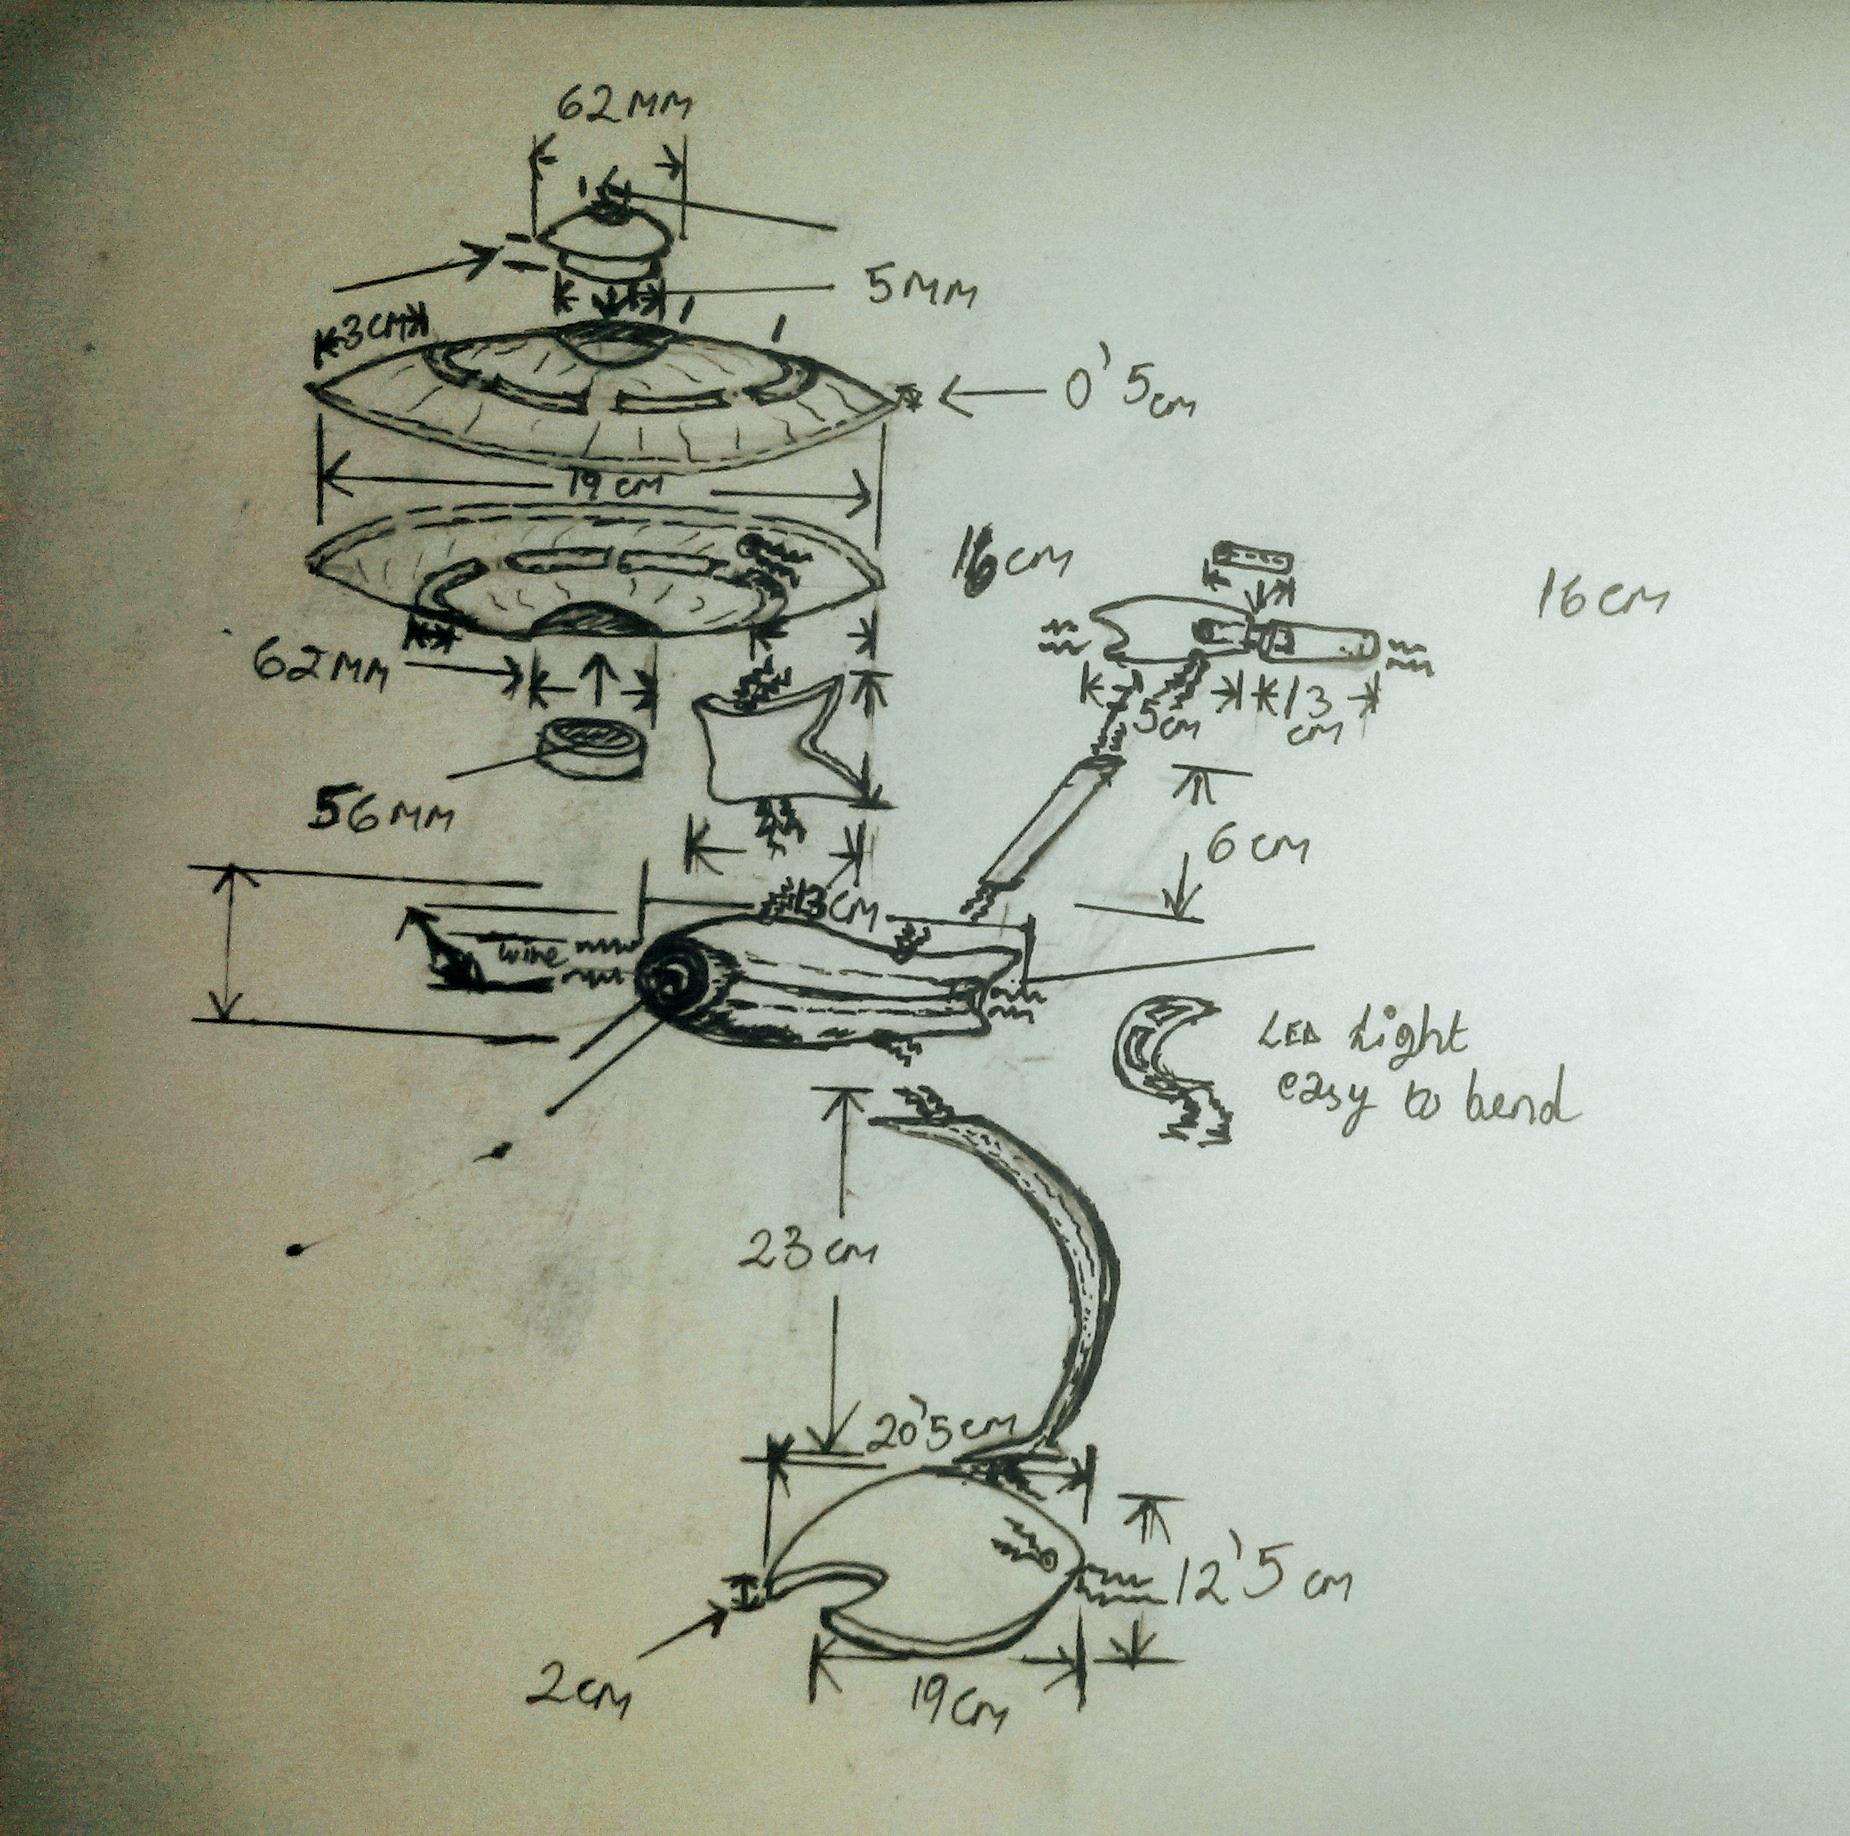 62MM
5MM
3CM
0'5cm
19 cm
16cm
16cm
62MM
5cm
13
cm
56MM
6cm
13cm
wire
LED Light
easy to bend
23cm
20'5cm
12'5 cm
2cm
19cm